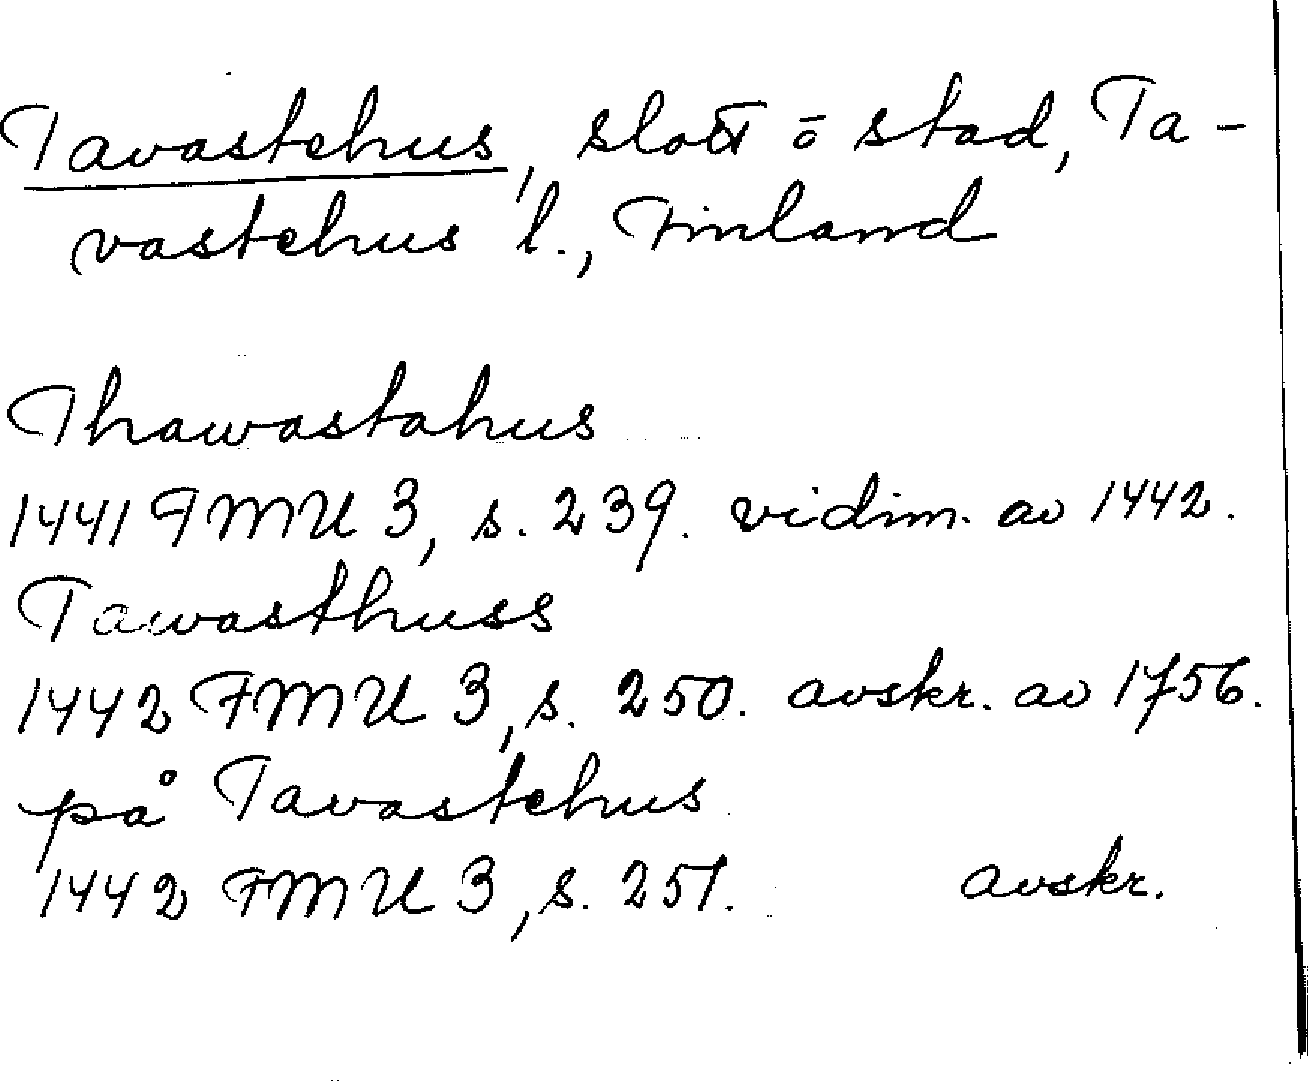 Tavastehus, slott ō stad, Ta-
vastehus l., Finland
Thawastahus
1441 FMU 3, s. 239. vidim. av 1442.
Tawasthuss
1442 FMU 3, s. 250. avskr. av 1756.
på Tavastehus
1442 FMU 3, s. 251. avskr.